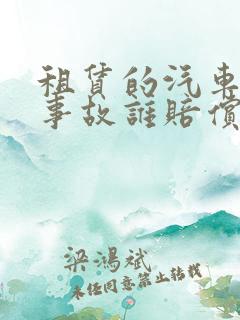 租赁的汽车
事故谁赔偿
梁鸿斌
未经同意禁止转载